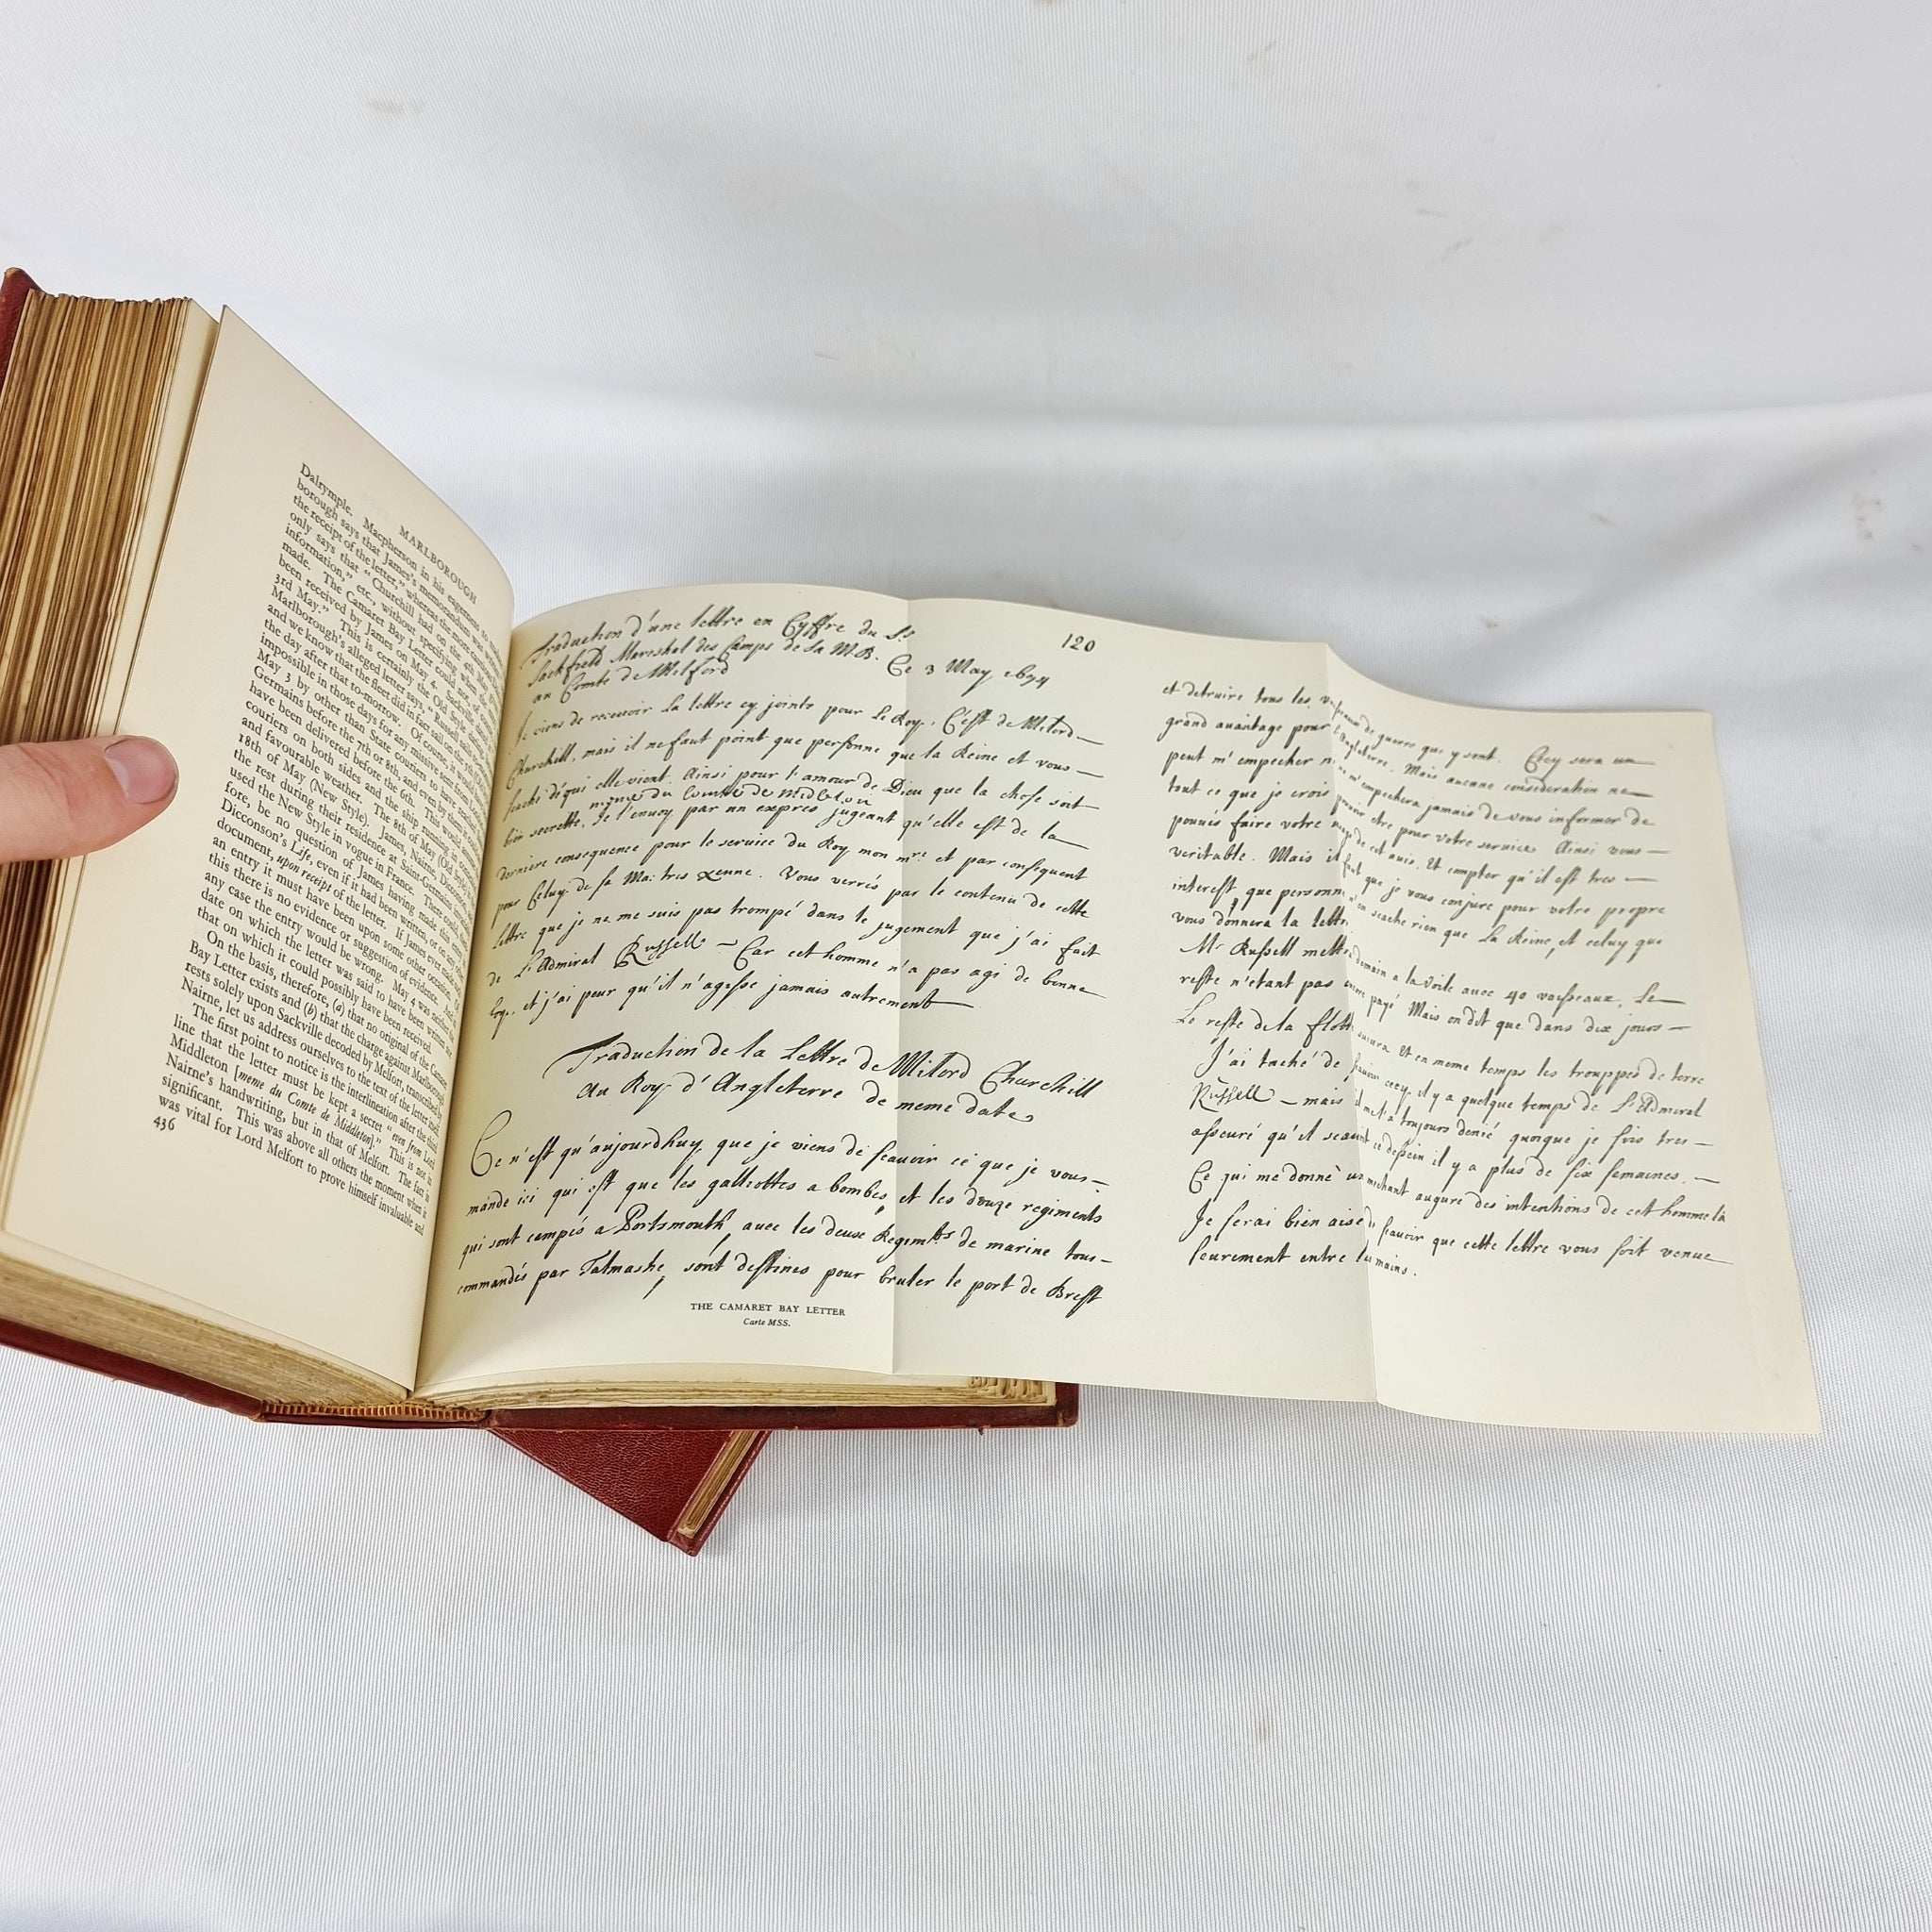 MARLBOROUGH
Dalrymple. Macpherson in his eagerness to
borough says that James's memorandum was
the receipt of the letter," whereas the
only says that "Churchill had on the 4th May
information," etc., without specifying
made. The Camaret Bay Letter could
been received by James on May 4.
3rd May." This is certainly the Old Style
Marlborough's alleged letter says, "Russell sails
and we know that the fleet did in fact sail on the
the day after that to-morrow. Of course, it would
impossible in those days for any missive
May 3 by other than State couriers to have
Germains before the 7th or 8th, and even by
have been delivered before the 6th. This would
couriers on both sides and the ship running in
and favourable weather. The 8th of May (Old Style)
18th of May (New Style). James, Nairne, Dicconson,
the rest during their residence at Saint-Germains
used the New Style in vogue in France. There could,
fore, be no question of James having made this entry
Dicconson's Life, even if it had been written, or on any
document, upon receipt of the letter. If James ever made
an entry it must have been upon some other occasion.
this there is no evidence or suggestion of evidence.
any case the entry would be wrong. May 4 was neither the
date on which the letter was said to have been written nor
that on which it could possibly have been received.
On the basis, therefore, (a) that no original of the Camaret
Bay Letter exists and (b) that the charge against Marlborough
rests solely upon Sackville decoded by Melfort, transcribed by
Nairne, let us address ourselves to the text of the letter itself.
The first point to notice is the interlineation after the third
line that the letter must be kept a secret "even from Lord
Middleton [meme du Comte de Middleton]." This is not in
Nairne's handwriting, but in that of Melfort. The fact is
significant. This was above all others the moment when it
was vital for Lord Melfort to prove himself invaluable and
436
Traduction d'une lettre en Cyffre du Sr
Sackfield Mareshal des Camps de Sa M.B.
au Comte de Milford
Ce 3 May 1694
120
Je viens de recevoir la lettre cy jointe pour le Roy. C'est de Milord
Churchill, mais il ne faut point que personne que la Reine et vous
sache de qui elle vient. Ainsi pour l'amour de Dieu que la chose soit
meme du Comte de Midleton
bien secrette. Je l'envoy par un expres jugeant qu'elle est de la
derniere consequence pour le service du Roy mon mre et par consequent
pour Celuy de sa Ma: tres xenne. Vous verrés par le contenu de cette
lettre que je ne me suis pas trompé dans le jugement que j'ai fait
de l'Admiral Russell – Car cet homme n'a pas agi de bonne
foy, et j'ai peur qu'il n'agesse jamais autrement
Traduction de la Lettre de Milord Churchill
au Roy d'Angleterre de meme date
Ce n'est qu'aujourdhuy que je viens de scavoir ce que je vous
mande ici qui est que les galliottes a bombes, et les douze regiments
qui sont campés a Portsmouth, avec les deux Regimts de marine tous
commandés par Talmashe, sont destinés pour bruler le port de Brest
THE CAMARET BAY LETTER
Carte MSS.
et detruire tous les vaisseaux de guerre que y sont. Cecy sera un
grand avantage pour l'Angleterre. Mais aucune consideration ne
peut m'empecher ni ne m'empechera jamais de vous informer de
tout ce que je crois pouvoir etre pour votre service Ainsi vous
pouvés faire votre usage de cet avis. Et compter qu'il est tres
veritable. Mais il faut que je vous conjure pour votre propre
interest, que personne n'en scache rien que la Reine, et celuy qui
vous donnera la lettre
Mr Russell mettra demain a la voile avec 40 vaisseaux, le
reste n'etant pas encore payé Mais on dit que dans dix jours
Le reste de la flotte suivra Et en meme temps les trouppes de terre
J'ai taché de scavoir cecy, il y a quelque temps de l'Admiral
Russell – mais il me l'a toujours denié quoique je sois tres
asseuré qu'il scavoit ce dessein il y a plus de six semaines.
Ce qui me donne un mechant augure des intentions de cet homme la
Je serai bien aise de scavoir que cette lettre vous soit venue
seurement entre les mains.